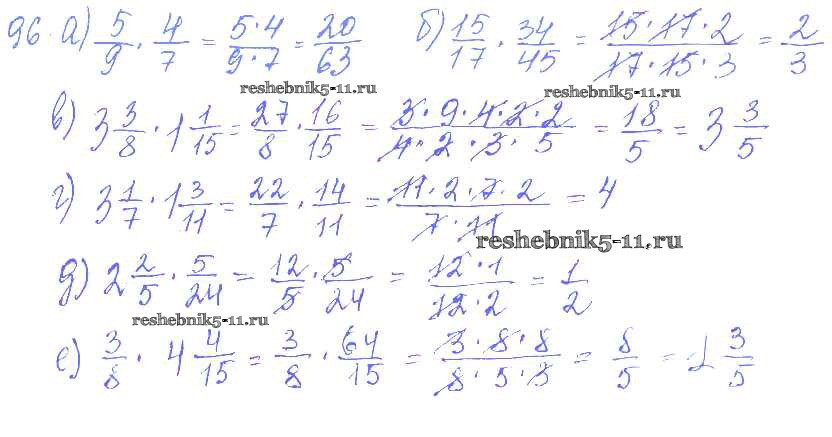 96. а) 5/9 · 4/7 = 5·4/9·7 = 20/63 б) 15/17 · 34/45 = 15·17·2/17·15·3 = 2/3
reshebnik5-11.ru reshebnik5-11.ru
в) 3 3/8 · 1 1/15 = 27/8 · 16/15 = 3·9·4·2·2/4·2·3·5 = 18/5 = 3 3/5
г) 3 1/7 · 1 3/11 = 22/7 · 14/11 = 11·2·7·2/7·11 = 4
reshebnik5-11.ru
д) 2 2/5 · 5/24 = 12/5 · 5/24 = 12·1/12·2 = 1/2
reshebnik5-11.ru
е) 3/8 · 4 4/15 = 3/8 · 64/15 = 3·8·8/8·5·3 = 8/5 = 1 3/5